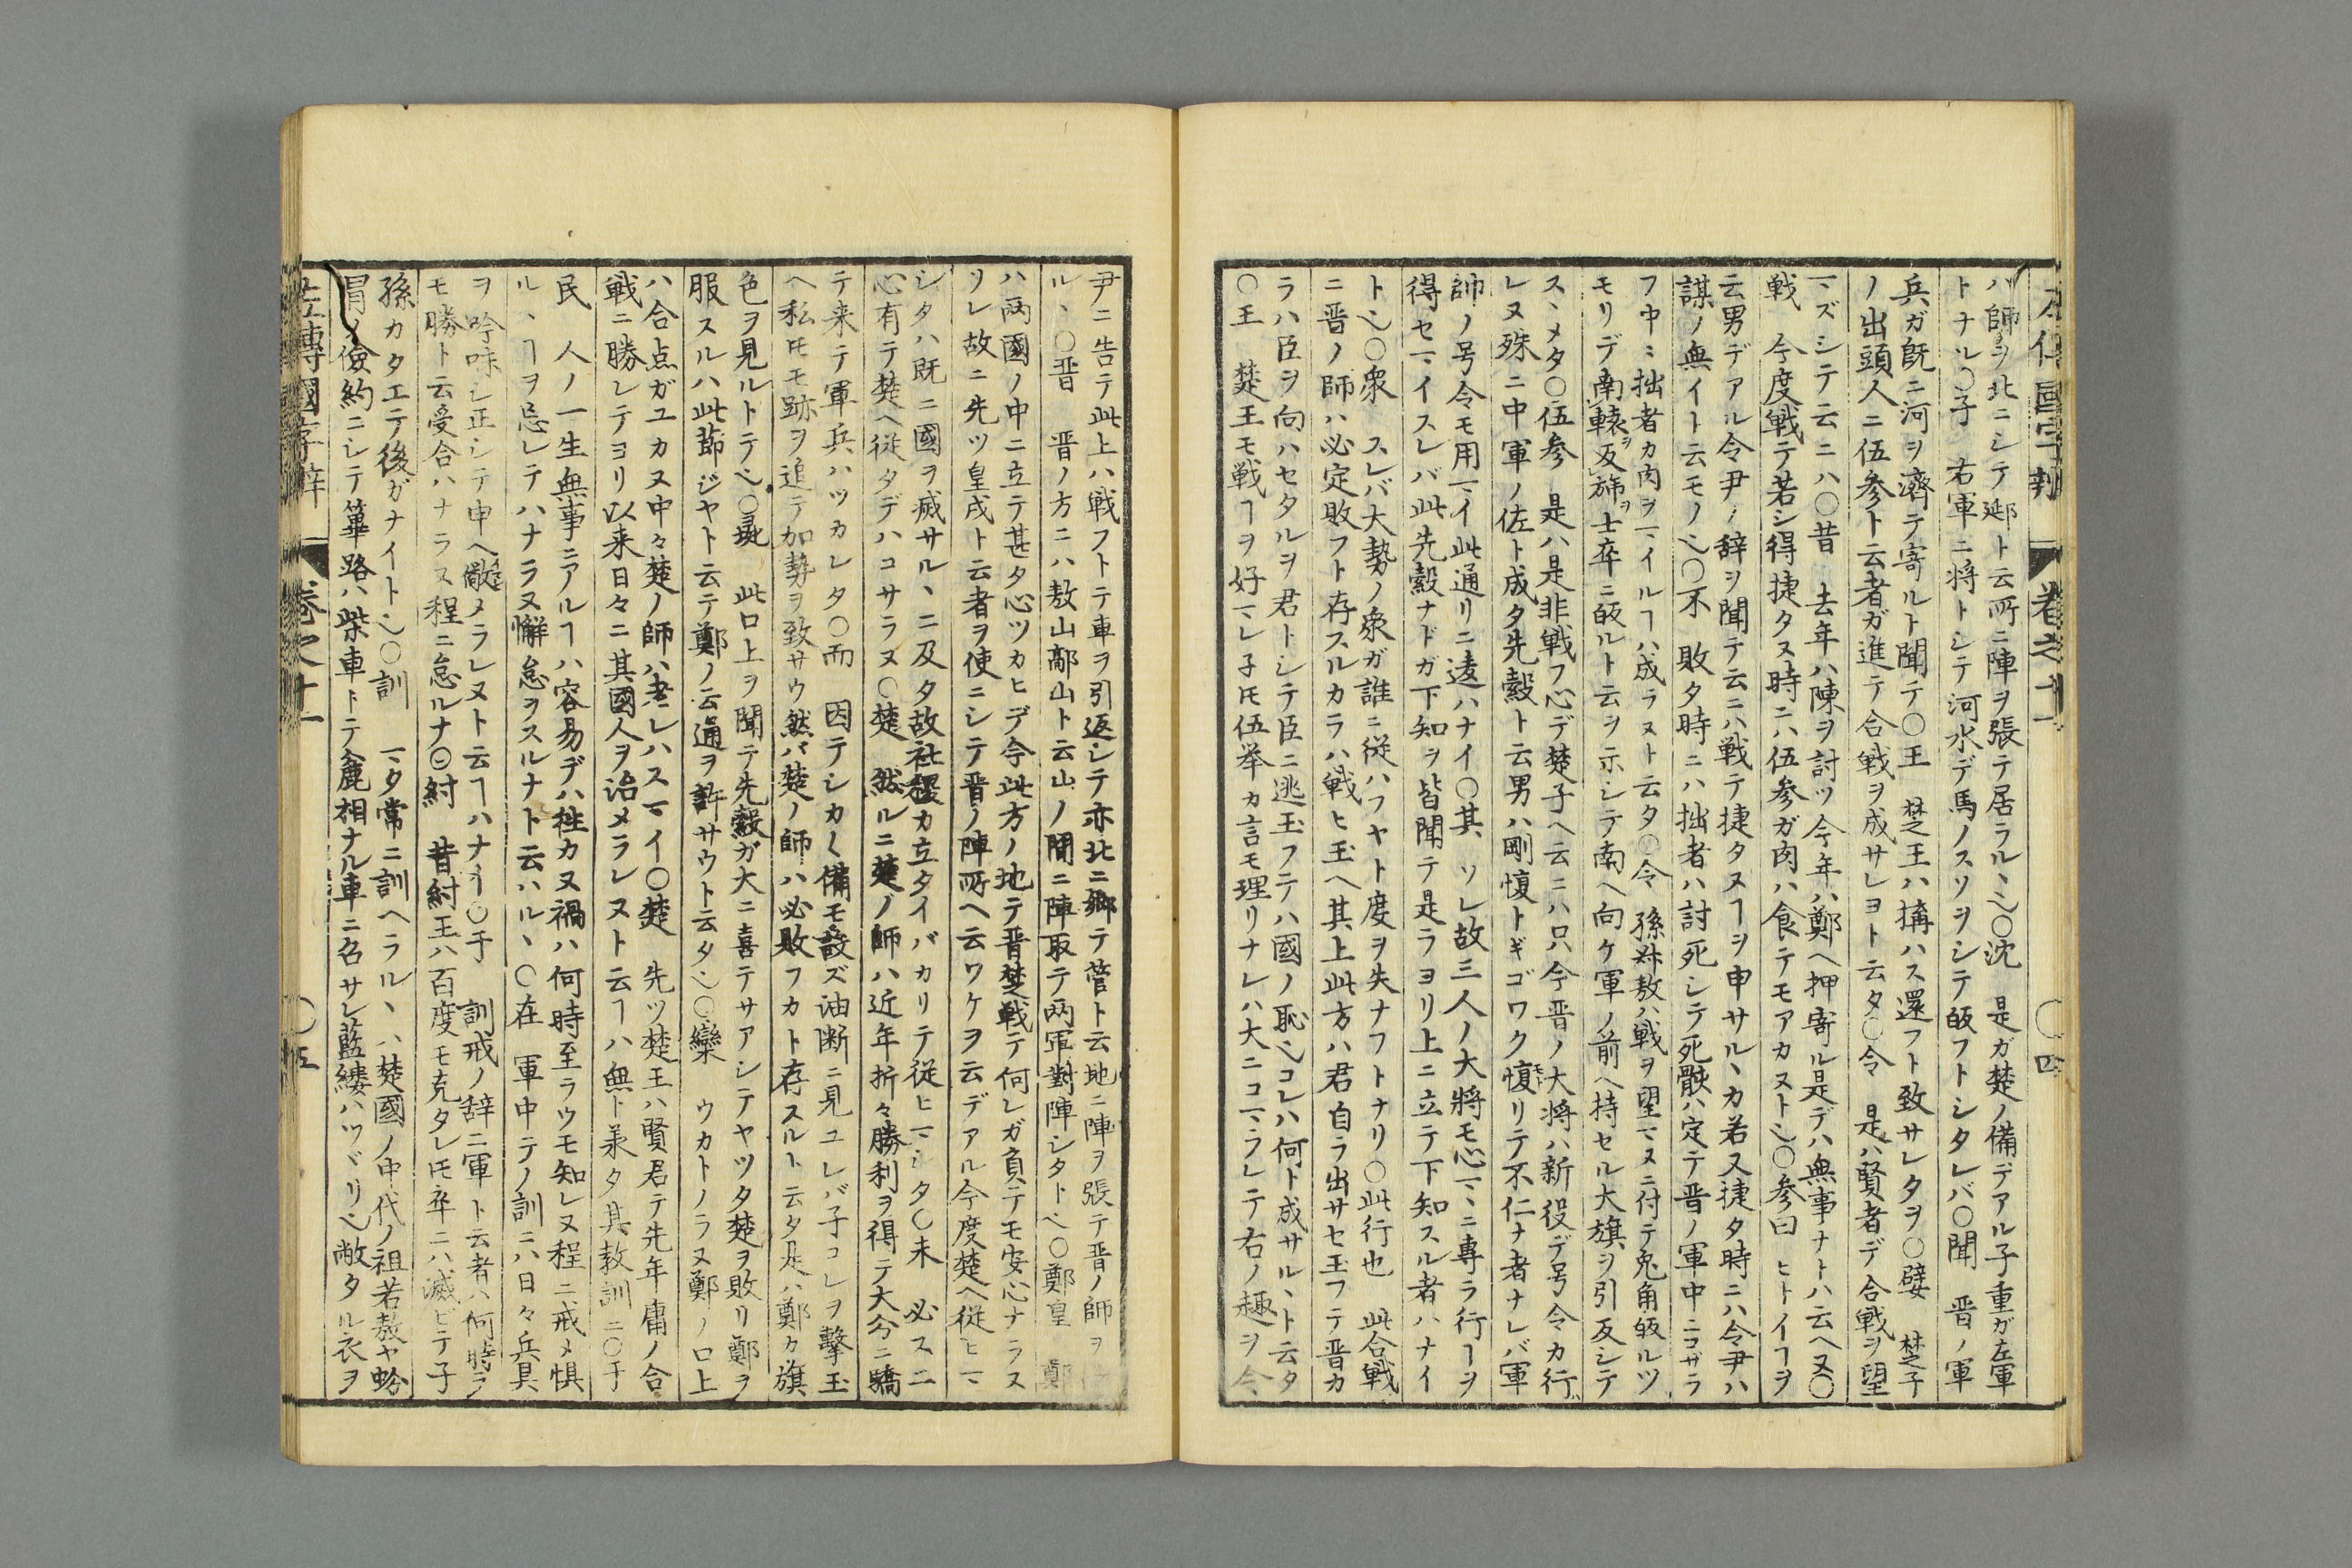 左傳國字辯 巻之十一 〇四
ハ師ヲ北ニシテ郔ト云所ニ陣ヲ張テ居ラルヽヘ〇沈 是ガ楚ノ備デアル子重ガ左軍
トナル〇子 右軍ニ将トシテ河水デ馬ノスソヲシテ皈フトシタレバ〇聞 晋ノ軍
兵ガ既ニ河ヲ濟テ寄ルト聞テ〇王 楚王ハ搆ハス還フト致サレタヲ〇嬖 楚子
ノ出頭人ニ伍参ト云者ガ進テ合戦ヲ成サレヨト云タ〇令 是ハ賢者デ合戦ヲ望
マズシテ云ニハ〇昔 去年ハ陳ヲ討ツ今年ハ鄭ヘ押寄ル是デハ無事ナトハ云ヘヌ〇
戦 今度戦テ若シ得捷タヌ時ニハ伍参ガ肉ハ食テモアカヌトヘ〇参曰 ヒトイヿヲ
云男デアル令尹ノ辞ヲ聞テ云ニハ戦テ捷タヌヿヲ申サルヽカ若又捷タ時ニハ令尹ハ
謀ノ無イト云モノヘ〇不 敗タ時ニハ拙者ハ討死シテ死骸ハ定テ晋ノ軍中ニコザラ
フ中々拙者カ肉ヲマイルヿハ成ラヌト云タ〇令 孫叔敖ハ戦ヲ望マヌニ付テ兎角皈ルツ
モリデ南轅ヲ反旆ヲ士卒ニ皈ルト云ヲ示シテ南ヘ向ケ軍ノ前ヘ持セル大旗ヲ引反シテ
スヽメタ〇伍参 是ハ是非戦フ心デ楚子ヘ云ニハ只今晋ノ大将ハ新役デ号令カ行
レヌ殊ニ中軍ノ佐ト成タ先縠ト云男ハ剛愎トギゴワク愎リテ不仁ナ者ナレバ軍
帥ノ号令モ用マイ此通リニ違ハナイ〇其 ソレ故三人ノ大將モ心マヽニ專ラ行ヿヲ
得セマイスレバ此先縠ナドガ下知ヲ皆聞テ是ラヨリ上ニ立テ下知スル者ハナイ
トヘ〇衆 スレバ大勢ノ衆ガ誰ニ従ハフヤト度ヲ失ナフトナリ〇此行也 此合戦
ニ晋ノ師ハ必定敗フト存スルカラハ戦ヒ玉ヘ其上此方ハ君自ラ出サセ玉フテ晋カ
ラハ臣ヲ向ハセタルヲ君トシテ臣ニ逃玉フテハ國ノ恥ヘコレハ何ト成サルヽト云タ
〇王 楚王モ戦フヿヲ好マレ子圧伍挙カ言モ理リナレハ大ニコマラレテ右ノ趣ヲ令
尹ニ告テ此上ハ戦フトテ車ヲ引返シテ亦北ニ郷テ菅ト云地ニ陣ヲ張テ晋ノ師ヲ
ルヽ〇晋 晋ノ方ニハ敖山鄗山ト云山ノ間ニ陣取テ両軍對陣シタトヘ〇鄭皇 鄭
ハ両國ノ中ニ立テ甚タ心ツカヒデ今此方ノ地テ晋楚戦テ何レガ負テモ安心ナラヌ
ソレ故ニ先ツ皇戌ト云者ヲ使ニシテ晋ノ陣所ヘ云ワケヲ云デアル今度楚ヘ従ヒマ
シタハ既ニ國ヲ滅サルヽニ及タ故社稷カ立タイバカリテ従ヒマシタ〇未 必スニ
心有テ楚ヘ従タデハコサラヌ〇楚 然ルニ楚ノ師ハ近年折々勝利ヲ得テ大分ニ驕
テ来テ軍兵ハツカレタ〇而 因テシカ〱備モ設ズ油断ニ見ユレバ子コレヲ撃玉
ヘ私圧モ跡ヲ追テ加勢ヲ致サウ然バ楚ノ師ハ必敗フカト存スルト云タ是ハ鄭カ旗
色ヲ見ルトテヘ〇彘 此口上ヲ聞テ先縠ガ大ニ喜テサアシテヤツタ楚ヲ敗リ鄭ヲ
服スルハ此節ジヤト云テ鄭ノ云通ヲ許サウト云タヘ〇欒 ウカトノラヌ鄭ノ口上
ハ合点ガユカヌ中々楚ノ師ハ老レハスマイ〇楚 先ツ楚王ハ賢君テ先年庸ノ合
戦ニ勝レテヨリ以来日々ニ其國人ヲ治メラレヌト云ヿハ無ト承タ其教訓ニ〇于
民 人ノ一生無事ニアルヿハ容易デハ徃カヌ禍ハ何時至ラウモ知レヌ程ニ戒メ惧
ルヽヿヲ忘レテハナラヌ懈怠ヲスルナト云ハルヽ〇在 軍中テノ訓ニハ日々兵具
ヲ吟味シ正シテ申ヘ儆メラレヌト云ヿハナイ〇于 訓戒ノ辞ニ軍ト云者ハ何時ニ
モ勝ト云受合ハナラヌ程ニ怠ルナ〇紂 昔紂王ハ百度モ克タレ圧卒ニハ滅ビテ子
孫カタエテ後ガナイトヘ〇訓 マタ常ニ訓ヘラルヽハ楚國ノ中代ノ祖若敖ヤ蚡
冒ノ儉約ニシテ篳路ハ柴車トテ麁相ナル車ニ召サレ藍縷ハツヾリヘ敝タル衣ヲ
左傳國字辯 巻之十一 〇五